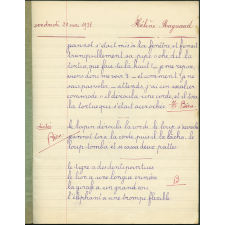 vendredi 29 mai 1931 Hélène Raynaud
passant s'était mis à la fenêtre et fumait
tranquillement sa pipe quand dit la
tortue que fais tu là haut? je me repose,
viens donc me voir? et comment? je ne
sais pas voler. attends, j'ai un escalier
commode et il déroula une corde et il tira
la tortue qui s'était accrochée.
le lapin déroula la corde. le loup s'accroche
le lapin tire la corde puis il la lâche. le
loup tomba et se cassa deux pattes
le tigre a des dents pointues
le lion a une longue crinière
la girafe a un grand cou
l'éléphant a une trompe flexible
B